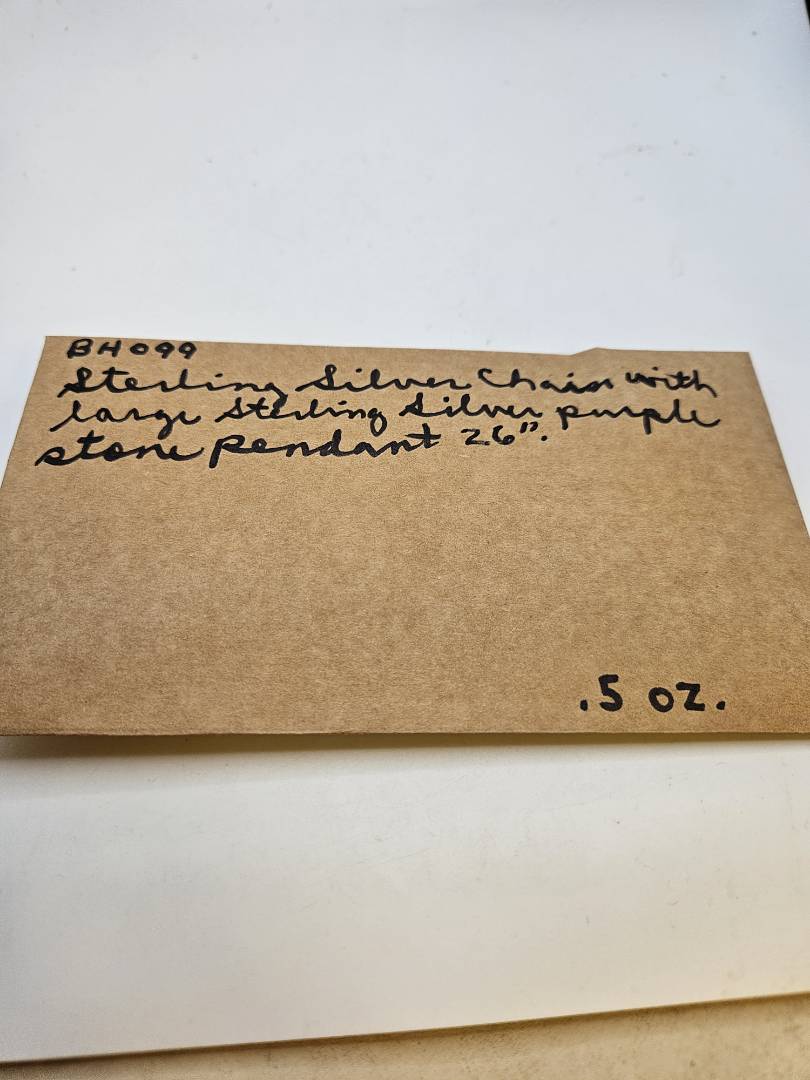 BH099
Sterling Silver Chain with
large Sterling Silver purple
stone pendant 26".
.5 oz.